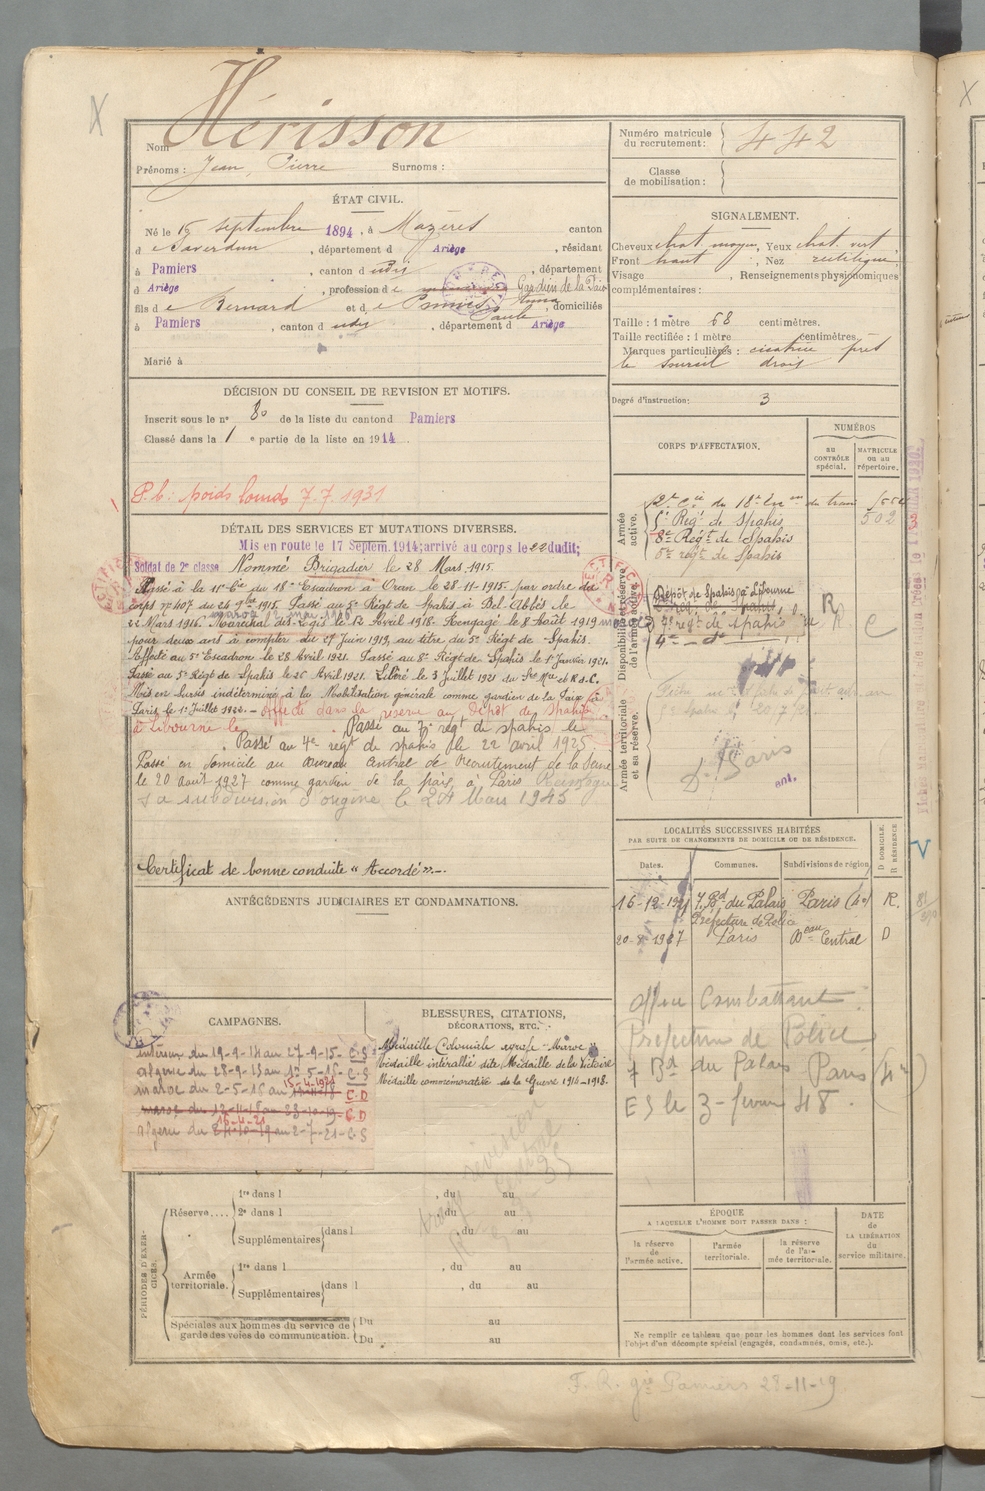 Nom Hérisson
Prénoms : Jean, Pierre Surnoms :
Numéro matricule du recrutement : 442
Classe de mobilisation :
ÉTAT CIVIL.
Né le 15 septembre 1894, à Mazères canton
d e Saverdun, département d Ariège, résidant
à Pamiers, canton d udit, département
d Ariège, profession d e Gardien de la Paix
fils d e Bernard et d e Pannies Anna Paule, domiciliés
à Pamiers, canton d udit, département d Ariège
Marié à
SIGNALEMENT.
Cheveux chat. moyen, Yeux chat. vert,
Front haut, Nez rectiligne,
Visage , Renseignements physionomiques
complémentaires :
Taille : 1 mètre 68 centimètres.
Taille rectifiée : 1 mètre centimètres.
Marques particulières : cicatrice près
le sourcil droit
Degré d'instruction : 3
DÉCISION DU CONSEIL DE REVISION ET MOTIFS.
Inscrit sous le n° 80 de la liste du canton d Pamiers
Classé dans la 1 e partie de la liste en 1914
P.l: poids lourds 7.7.1931
DÉTAIL DES SERVICES ET MUTATIONS DIVERSES.
Mis en route le 17 Septem. 1914; arrivé au corps le 22 dudit;
Soldat de 2e classe Nommé Brigadier le 28 Mars 1915.
Passé à la 11e Cie du 18e Escadron à Oran le 28-11-1915. par ordre du
corps n° 407 du 26 9bre 1915. Passé au 5e Régt de Spahis à Bel-Abbès le
22 Mars 1916. Maréchal des Logis le 12 Avril 1918. Rengagé le 8 Août 1919
pour deux ans à compter du 27 Juin 1919, au titre du 5e Régt de Spahis.
Affecté au 5e Escadron le 28 Avril 1921. Passé au 8e Régt de Spahis le 1er Janvier 1921.
Passé au 5e Régt de Spahis le 26 Avril 1921. Libéré le 3 Juillet 1921
Mis en sursis indéterminé à la Mobilisation générale comme gardien de la Paix à
Paris, le 1er Juillet 1922. - Affecté dans la réserve au Dépôt de Spahis
à Libourne le . Passé au 7e régt de spahis le
. Passé au 4e régt de spahis le 22 avril 1925.
Passé en domicile au Bureau Central de Recrutement de la Seine
le 20 Août 1927 comme gardien de la paix à Paris
sa subdivision d'origine le 24 Mars 1945
Certificat de bonne conduite « Accordé ».
CORPS D'AFFECTATION.
NUMÉROS
au CONTRÔLE spécial.
MATRICULE ou au répertoire.
Armée active.
2e Cie du 18e Escon du train
5e Régt de Spahis 502
8e Régt de Spahis
5e régt de Spahis
Disponibilité et réserve de l'armée active.
Dépôt de Spahis à Libourne
7e régt de spahis R
4e - d° -
Armée territoriale et sa réserve.
D. Paris
LOCALITÉS SUCCESSIVES HABITÉES
PAR SUITE DE CHANGEMENTS DE DOMICILE OU DE RÉSIDENCE.
Dates. Communes. Subdivisions de région.
D DOMICILE. R RÉSIDENCE
16-12-1921 7, Bd du Palais Paris (4e) R.
Préfecture de Police
20-8-1927 Paris Beau Central D
Combattant
Préfecture de Police
7 Bd du Palais Paris (4e)
ES le 3 février 48.
ANTÉCÉDENTS JUDICIAIRES ET CONDAMNATIONS.
CAMPAGNES.
intérieur du 19-9-14 au 27-9-15- C.S
algérie du 28-9-15 au 1-5-16- C.S
maroc du 2-5-16 au 15-4-1921 C.D
maroc du 12-11-18 au 23-10-19- C.D
algérie du 16-4-21 au 2-7-21- C.S
BLESSURES, CITATIONS,
DÉCORATIONS, ETC.
Médaille Coloniale agrafe "Maroc"
Médaille interalliée dite Médaille de la Victoire
Médaille commémorative de la Guerre 1914-1918.
PÉRIODES D'EXERCICES.
Réserve....
1re dans l , du au
2e dans l , du au
Supplémentaires dans l , du au
Armée territoriale.
1re dans l , du au
Supplémentaires dans l , du au
Spéciales aux hommes du service de
garde des voies de communication.
Du au
Du au
ÉPOQUE
A LAQUELLE L'HOMME DOIT PASSER DANS :
la réserve de l'armée active.
l'armée territoriale.
la réserve de l'armée territoriale.
DATE de LA LIBÉRATION du service militaire.
Ne remplir ce tableau que pour les hommes dont les services font
l'objet d'un décompte spécial (engagés, condamnés, omis, etc.).
F. R. gie Pamiers 28-11-19